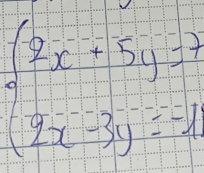 2x + 5y = 7
2x - 3y = -1